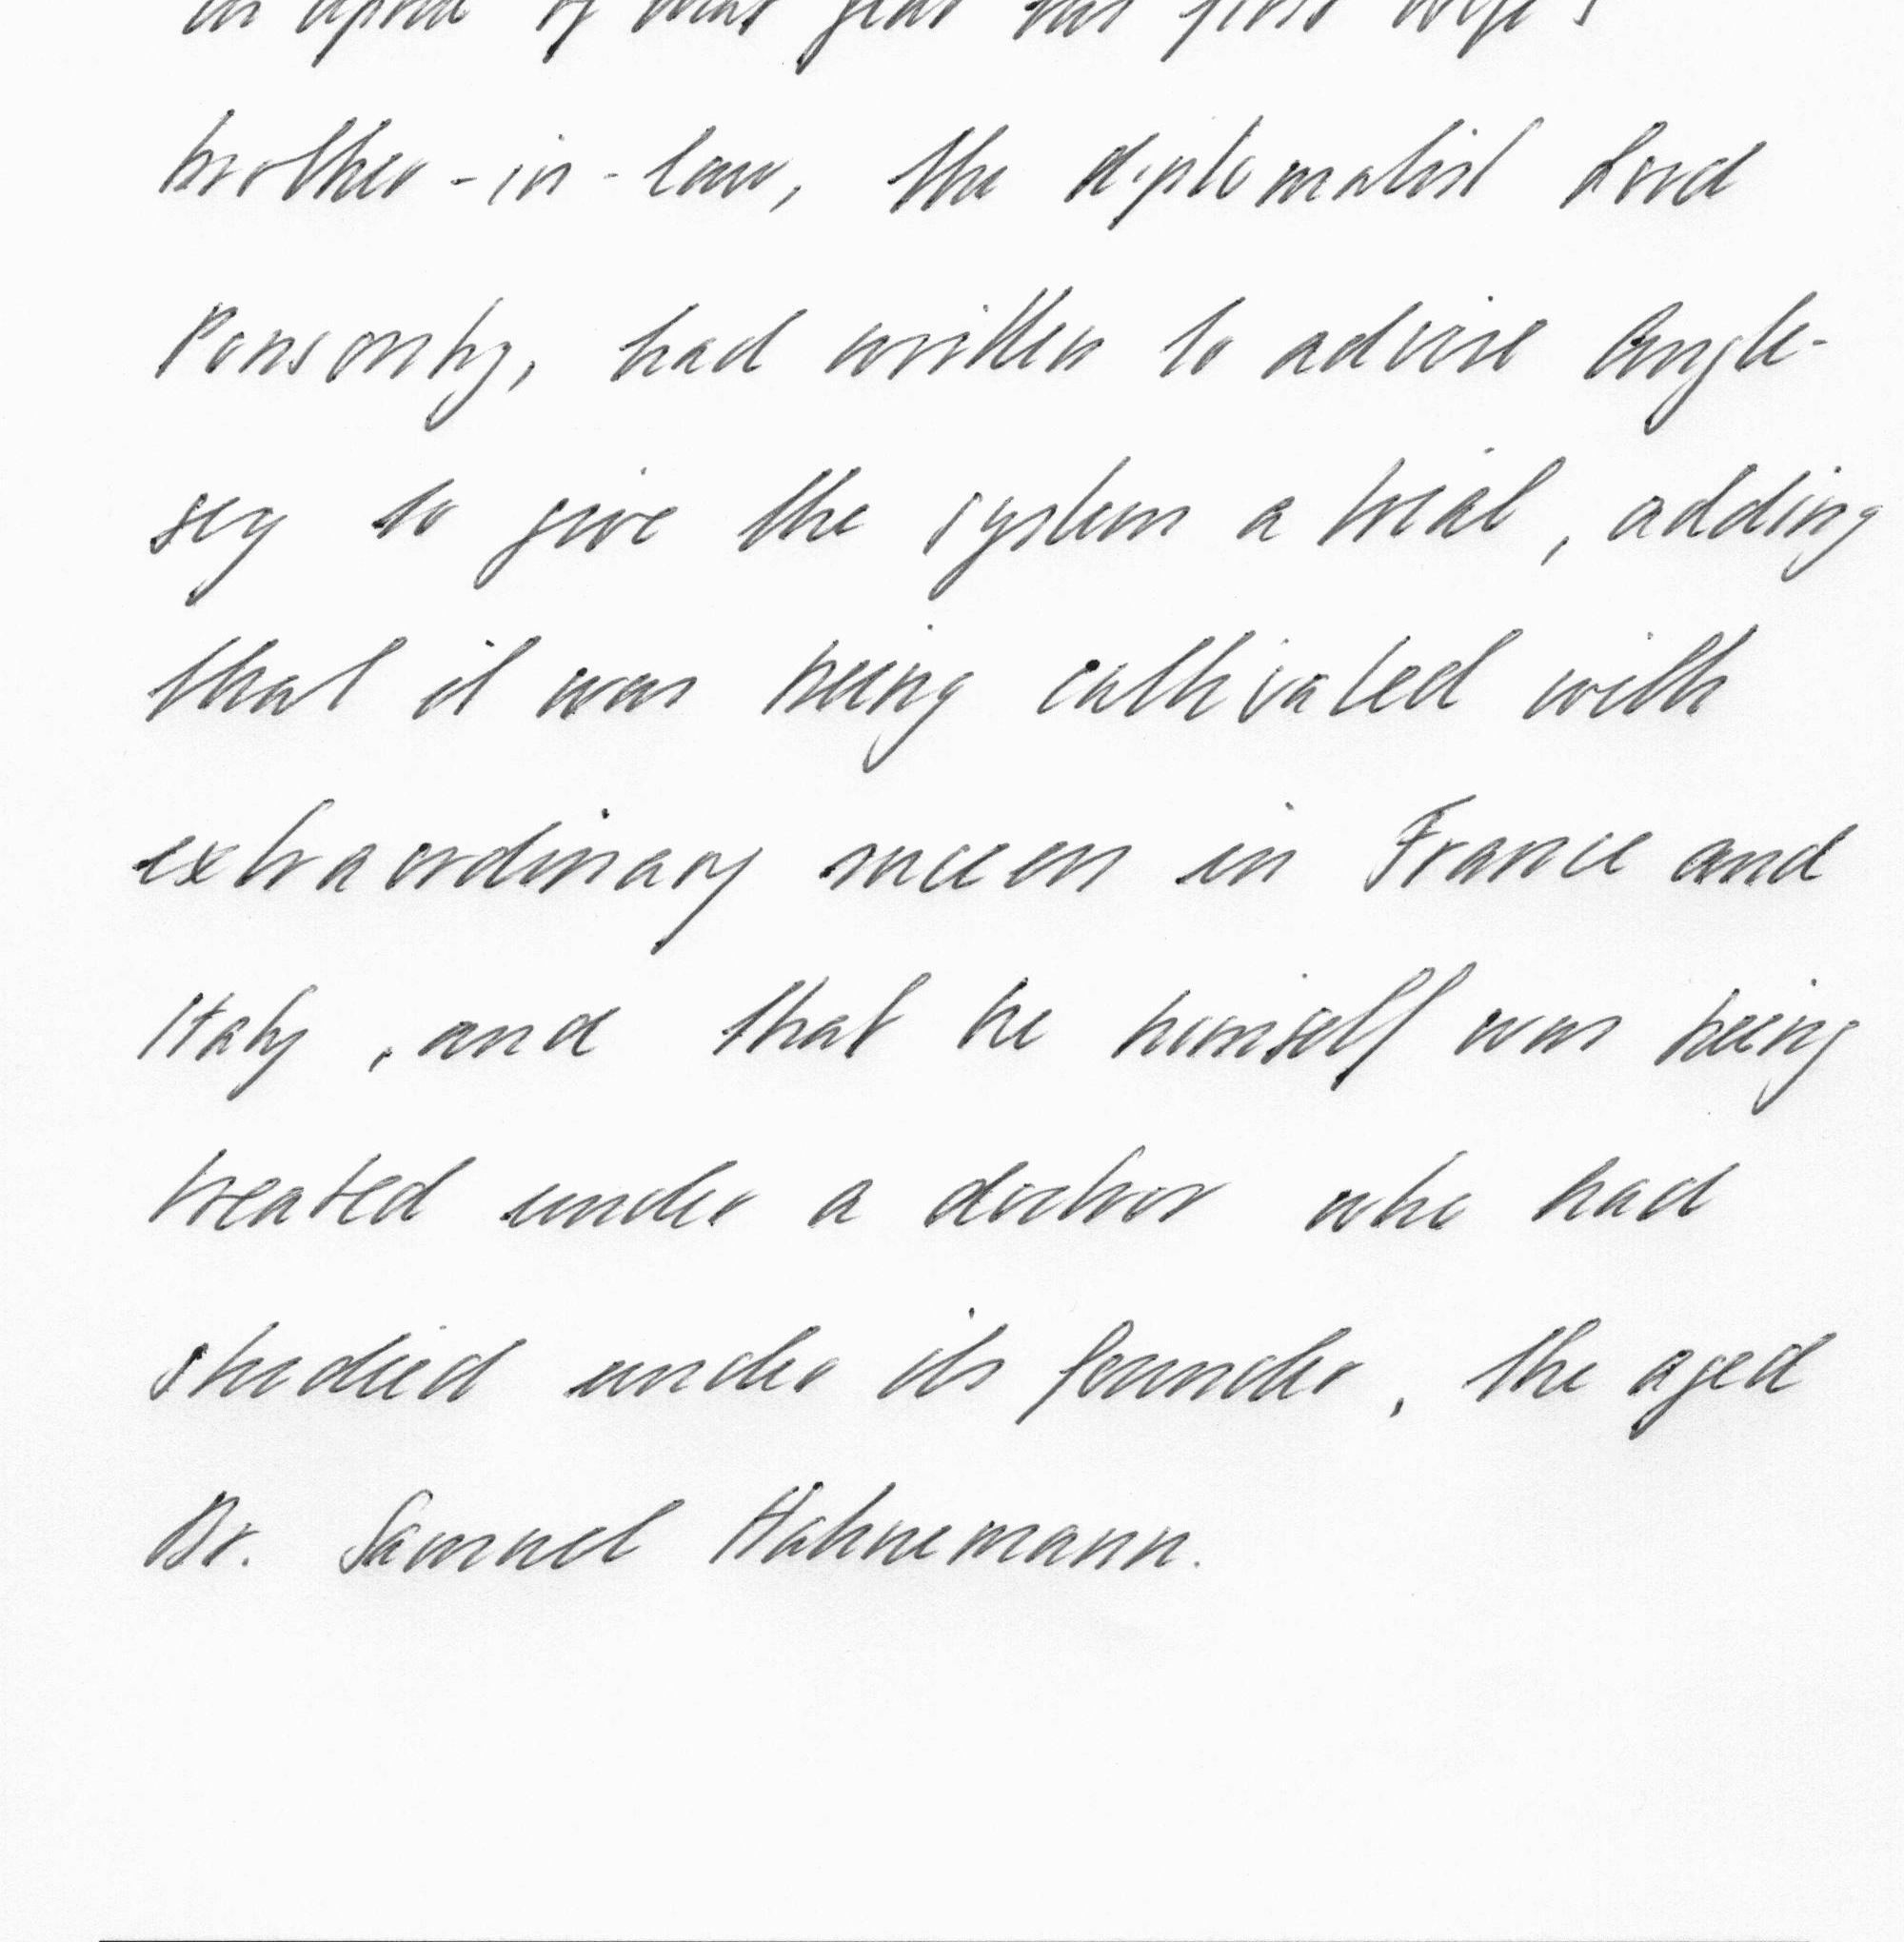 in April of that year his first wife's
brother-in-law, the diplomatist Lord
Ponsonby, had written to advise Angle-
sey to give the system a trial, adding
that it was being cultivated with
extraordinary success in France and
Italy, and that he himself was being
treated under a doctor who had
studied under its founder, the aged
Dr. Samuel Hahnemann.